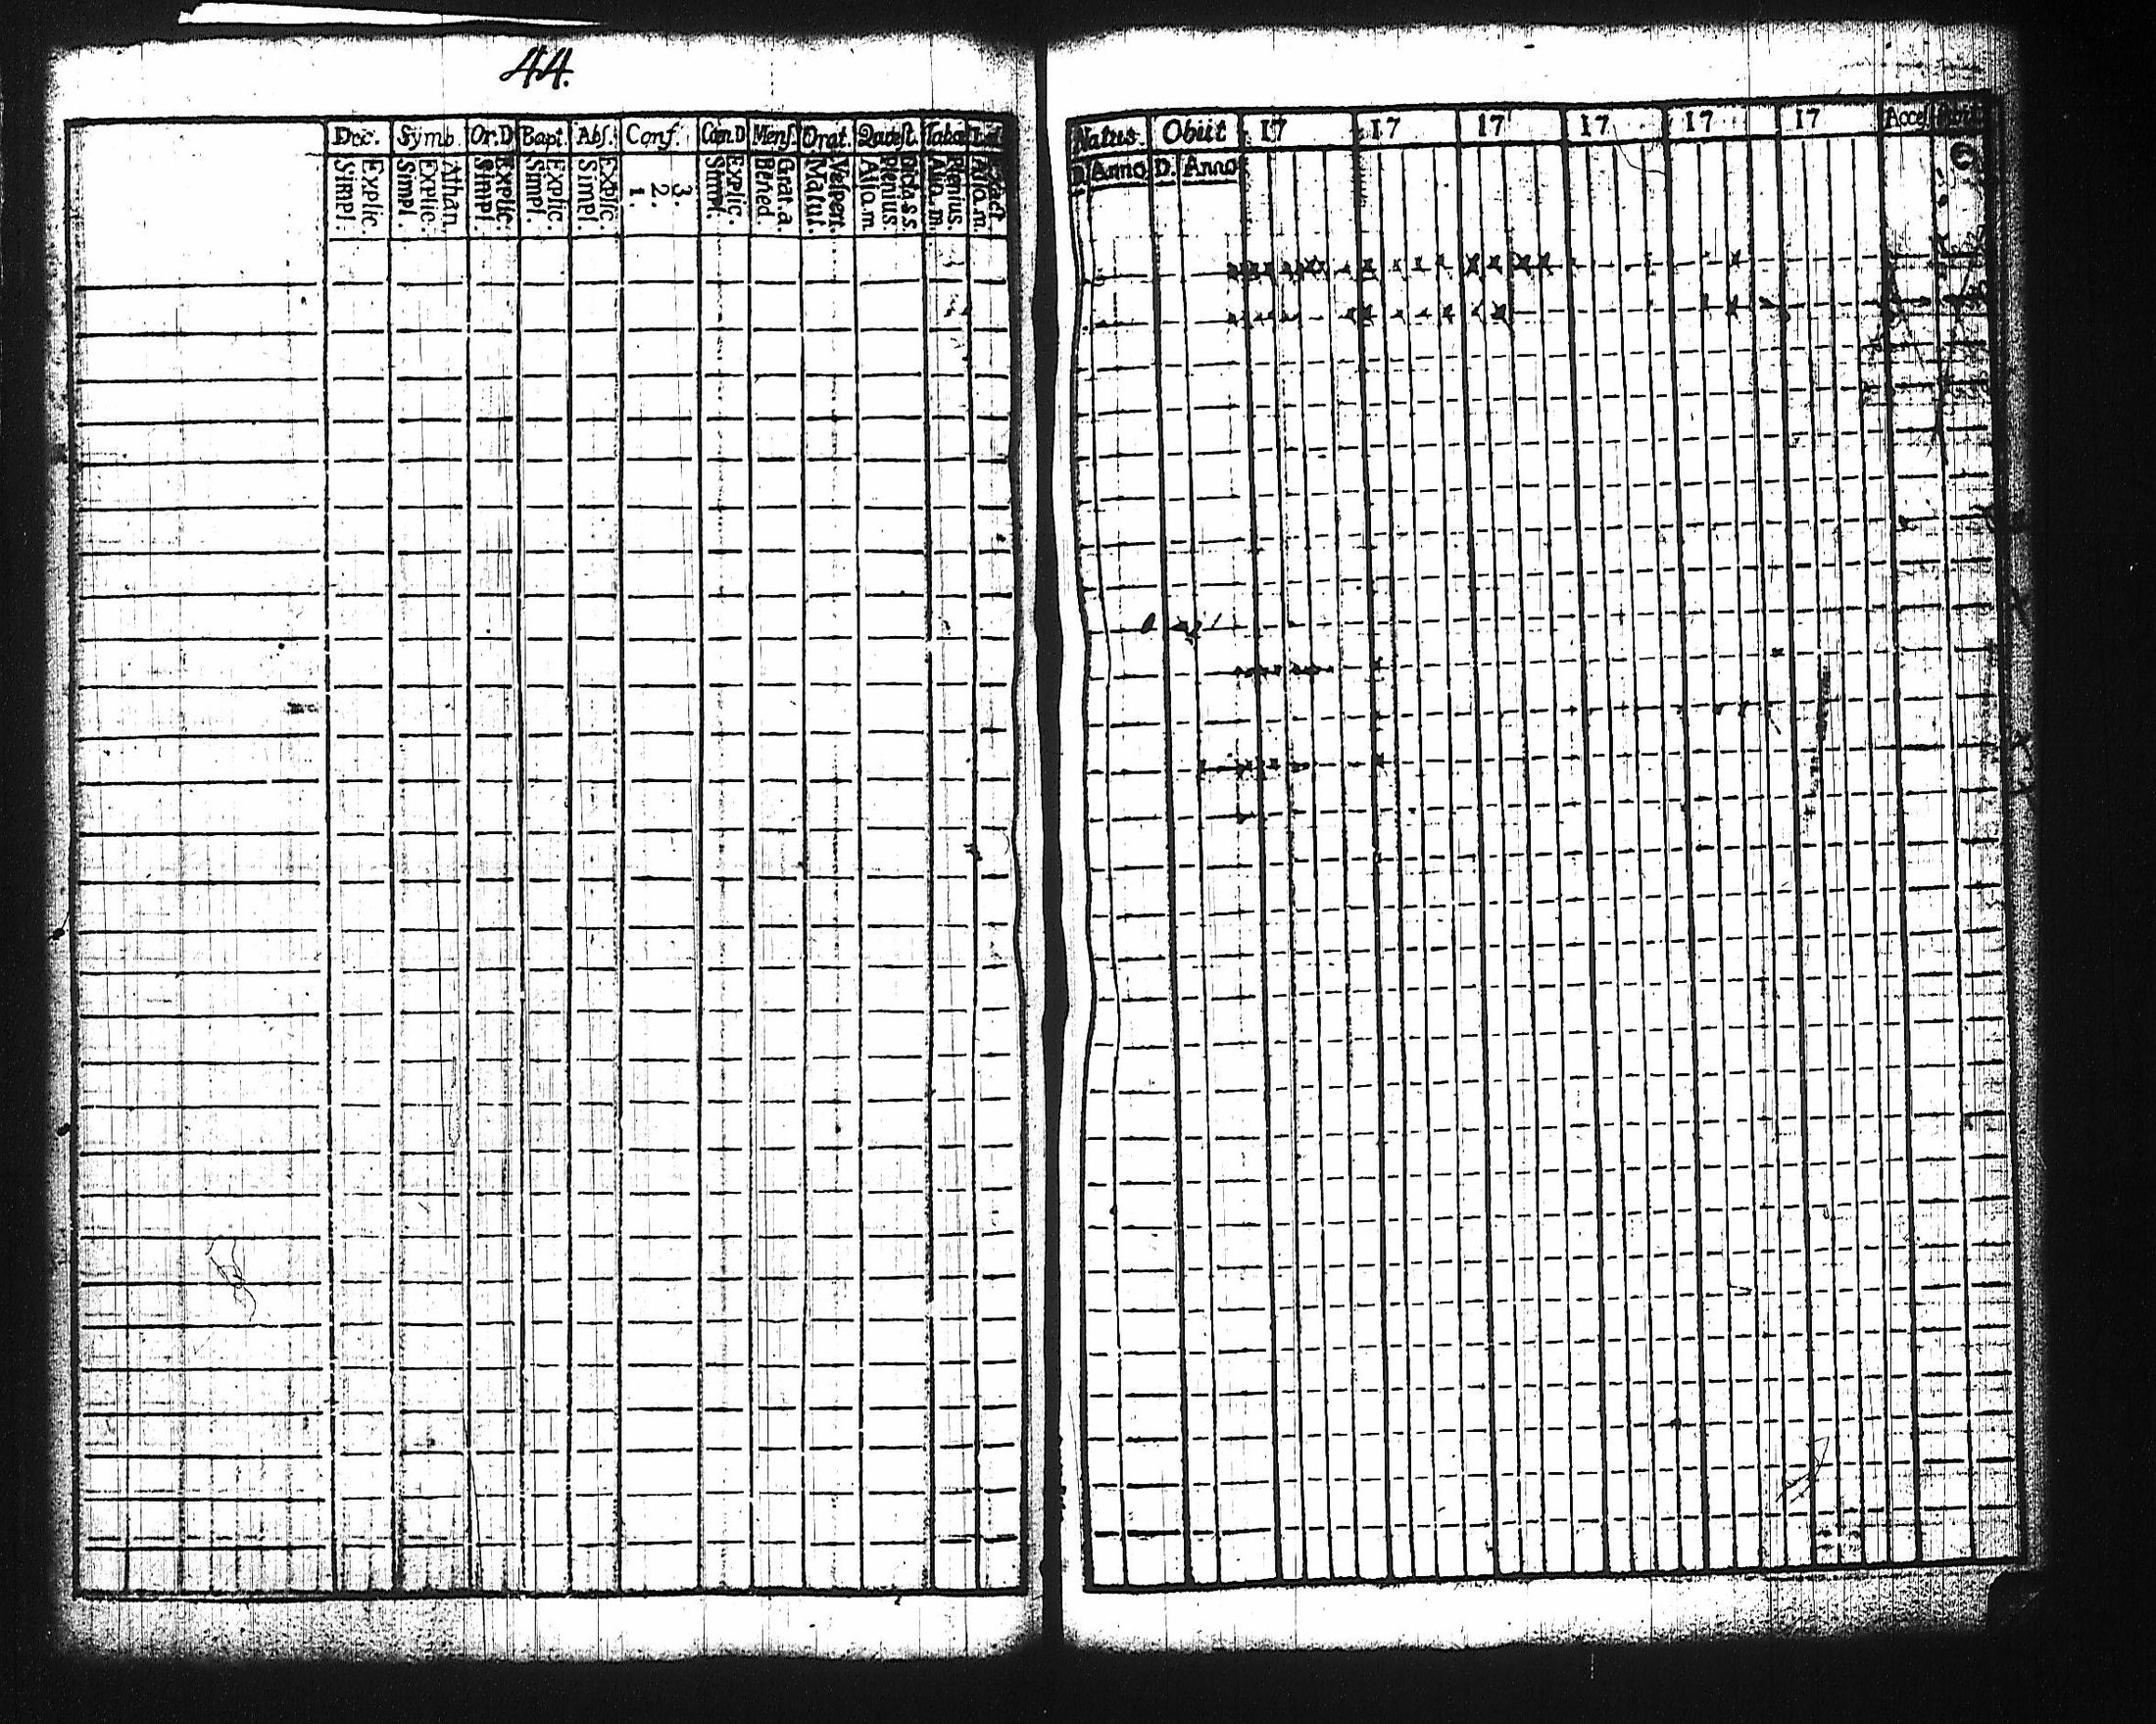 44.
Dec. Symb. Or.D Bapt. Abs. Conf. Cœn.D Mens. Orat. Quæst. Taba
Explic. Simpl.
Athan. Explic. Simpl.
Explic. Simpl.
Explic. Simpl.
Explic. Simpl.
3. 2. 1.
Explic. Simpl.
Grat.a. Bened.
Vespert. Matut.
Dicta.s.s. Plenius Aliq.m.
Plenius. Aliq.m.
Aliq.m.
Natus. Obiit 17 17 17 17 17 17 Acces.
D. Anno D. Anno